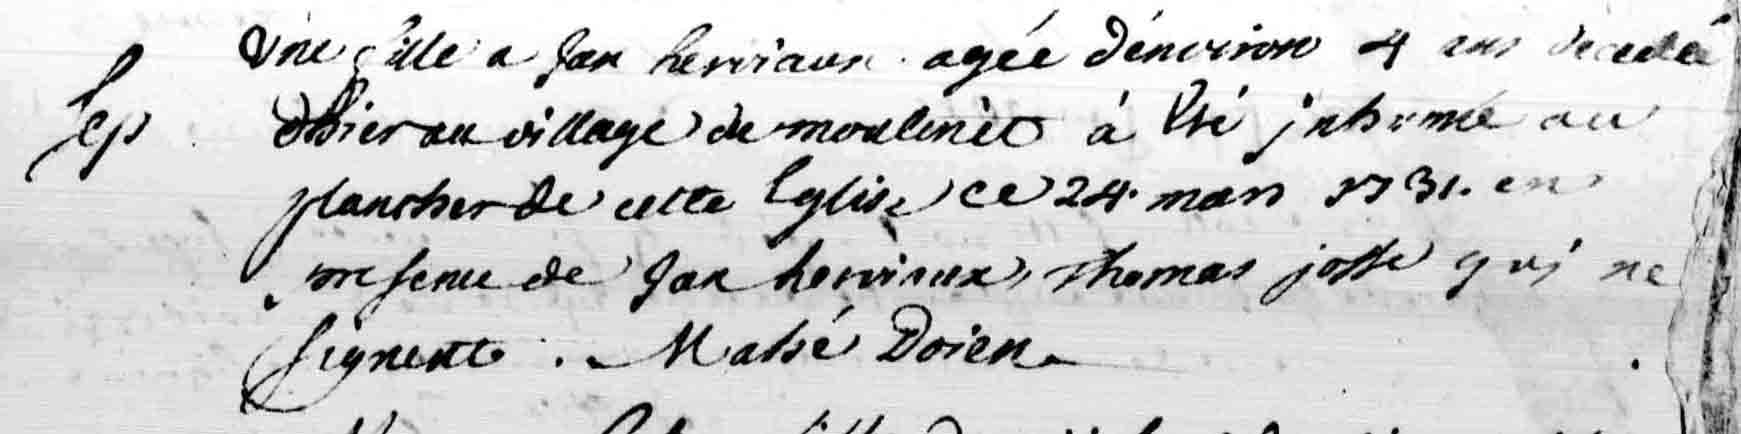 Une fille a Jan herviaux agée dénviron 4 ans decedée
Sep dhier au village de moulinet á Eté jnhumé au
plancher de cette Eglise ce 24. mars 1731. en
presence de Jan herviaux, Thomas josse qui ne
signent. Mahé Doien